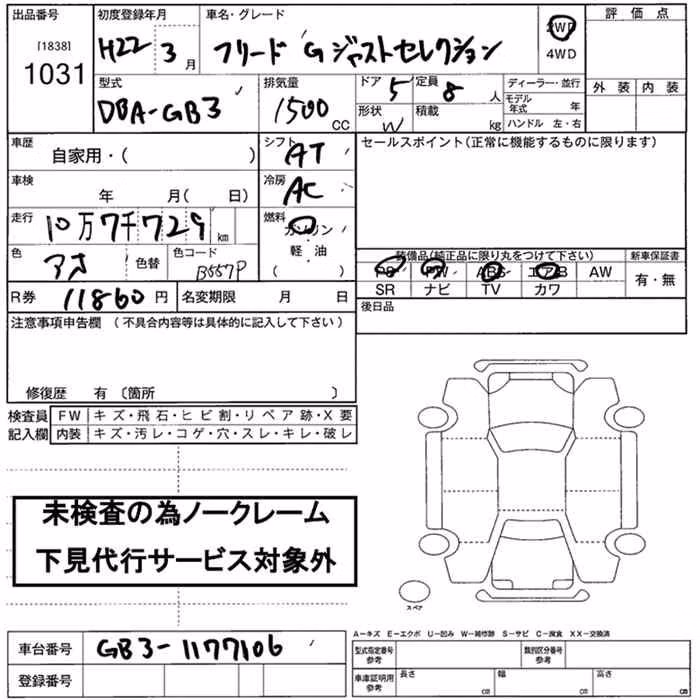 出品番号 初度登録年月 車名・グレード 2WD 評価点
[1838] 1031 H22 3月 フリード Gジャストセレクション 4WD
外装 内装
型式 排気量 ドア 5 定員 8人 ディーラー・並行
DBA-GB3 1500CC 形状 W 積載 kg モデル年式 年
ハンドル 左・右
車歴 自家用・( ) シフト AT セールスポイント(正常に機能するものに限ります)
車検 年 月( 日) 冷房 AC
走行 10万7千729km 燃料 ガソリン
軽油
( )
色 アオ 色替 色コード B557P
装備品(純正品に限り丸をつけて下さい) 新車保証書
PS PW ABS エアB AW 有・無
SR ナビ TV カワ
R券 11860円 名変期限 月 日 後日品
注意事項申告欄 (不具合内容等は具体的に記入して下さい)
修復歴 有 〔箇所 〕
検査員 FW キズ・飛石・ヒビ割・リペア跡・X要
記入欄 内装 キズ・汚レ・コゲ・穴・スレ・キレ・破レ
未検査の為ノークレーム
下見代行サービス対象外
スペア
A-キズ E-エクボ U-凹み W-補修跡 S-サビ C-腐食 XX-交換済
車台番号 GB3-1177106 型式指定番号 参考 類別区分番号 参考
登録番号 車庫証明用 参考 長さ cm 幅 cm 高さ cm